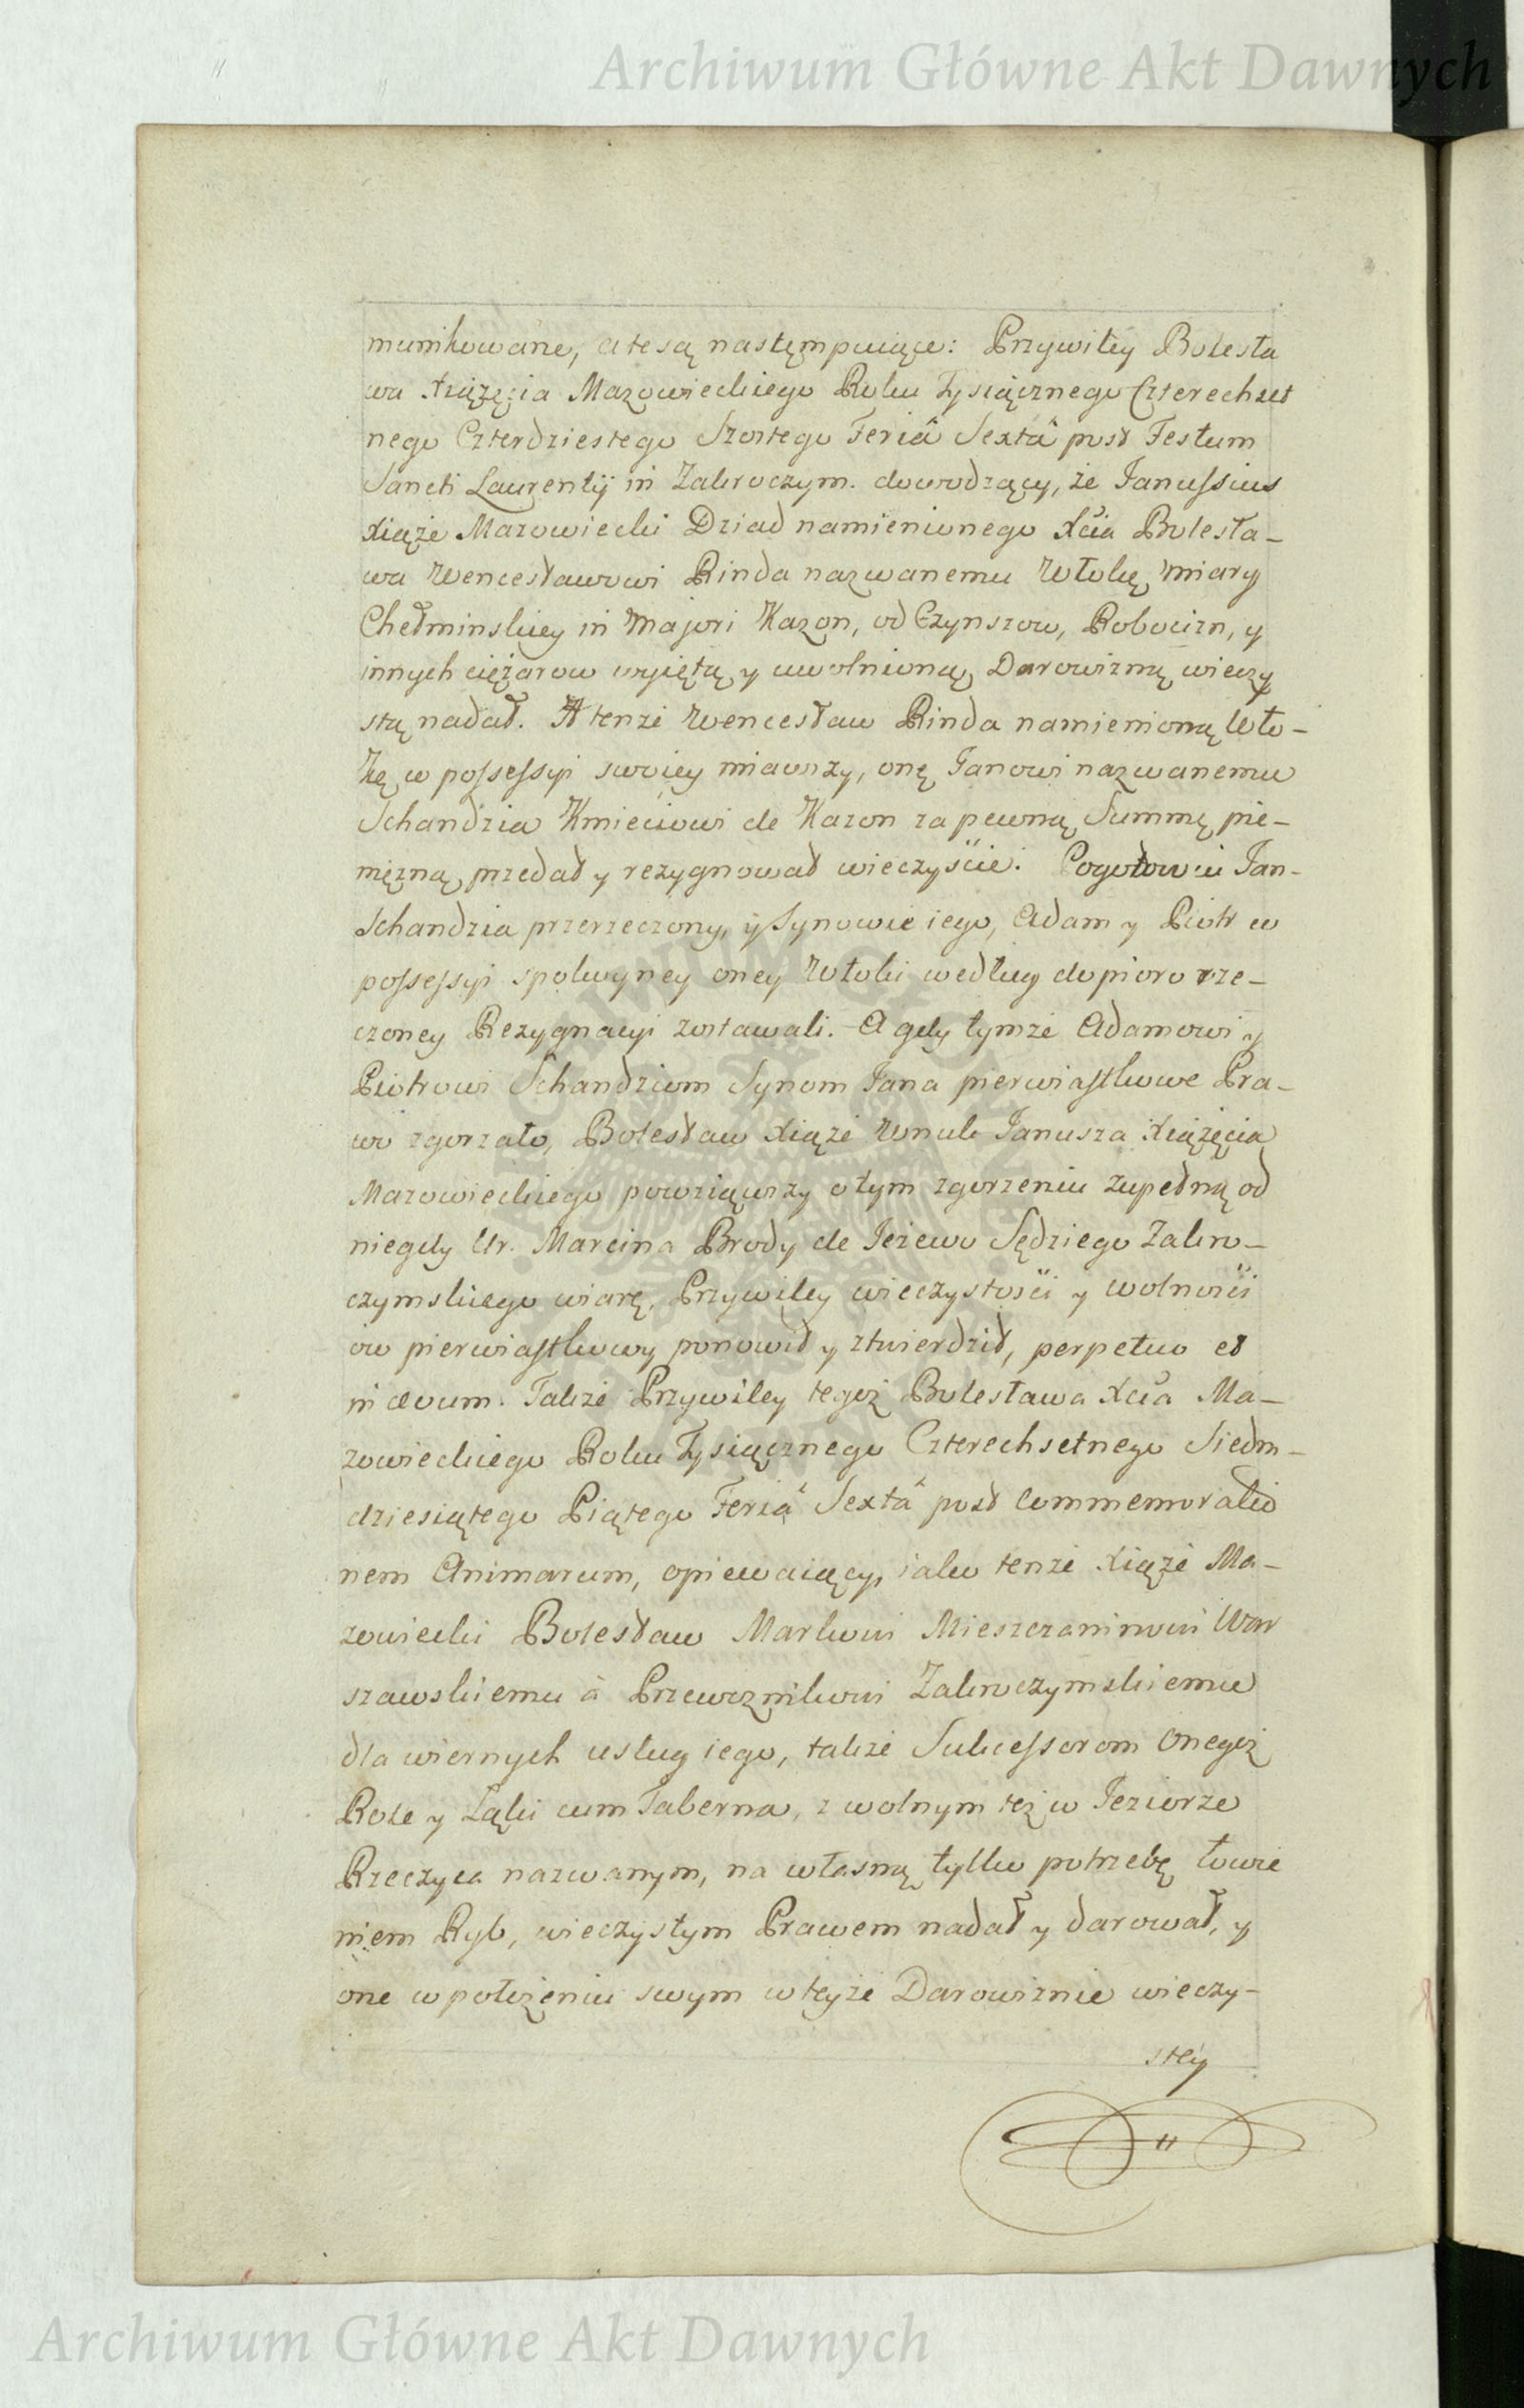 Archiwum Główne Akt Dawnych
munikowane, a te są następuiące: Przywiley Bolesła
wa Xiążęcia Mazowieckiego Roku Tysiącznego Czterechset
nego Czterdziestego Szostego Feriâ Sextâ post Festum
Sancti Laurentij in Zakroczym. dowodzący, że Janussius
Xiąże Mazowiecki Dziad namienionego Xcia Bolesła-
wa Wencesławowi Rinda nazwanemu Włokę miary
Chełminskiey in Majori Kazon, od Czynszow, Robocizn, y
innych ciężarow wyiętą y uwolnioną Darowizną wieczy
stą nadał. A tenże Wencesław Rinda namienioną Wło-
kę w possessyi swoiey miawszy, onę Janowi nazwanemu
Schandzia Kmieciowi de Kazon za pewną Summę pie-
niężną przedał y rezygnował wieczyście. Pogotowiu Jan
Schandzia przerzeczony, y Synowie iego, Adam y Piotr w
possessyi spokoyney oney Włoki według dopioro rze-
czoney Rezygnacyi zostawali. A gdy tymże Adamowi y
Piotrowi Schandziom Synom Jana pierwiastkowe Pra-
wo zgorzało, Bolesław Xiąże Wnuk Janusza Xiążęcia
Mazowieckiego powziąwszy o tym zgorzeniu zupełną od
niegdy Ur. Marcina Brody de Jeżewo Sędziego Zakro-
czymskiego wiarę, Przywiley wieczystości y wolności
ow pierwiastkowy ponowił y ztwierdził, perpetuo et
in ævum. Także Przywiley tegoż Bolesława Xcia Ma-
zowieckiego Roku Tysiącznego Czterechsetnego Siedm-
dziesiątego Piątego Feriâ Sextâ post Commemoratio
nem Animarum, opiewaiący, iako tenże Xiąże Ma-
zowiecki Bolesław Markowi Mieszczaninowi War
szawskiemu a Przewoznikowi Zakroczymskiemu
dla wiernych usług iego, także Sukcessorom onegoż
Role y Łąki cum Taberna, z wolnym też w Jeziorze
Rzeczyca nazwanym, na własną tylko potrzebę łowie
niem Ryb, wieczystym Prawem nadał y darował, y
one w położeniu swym w teyże Darowiznie wieczy-
stey
Archiwum Główne Akt Dawnych